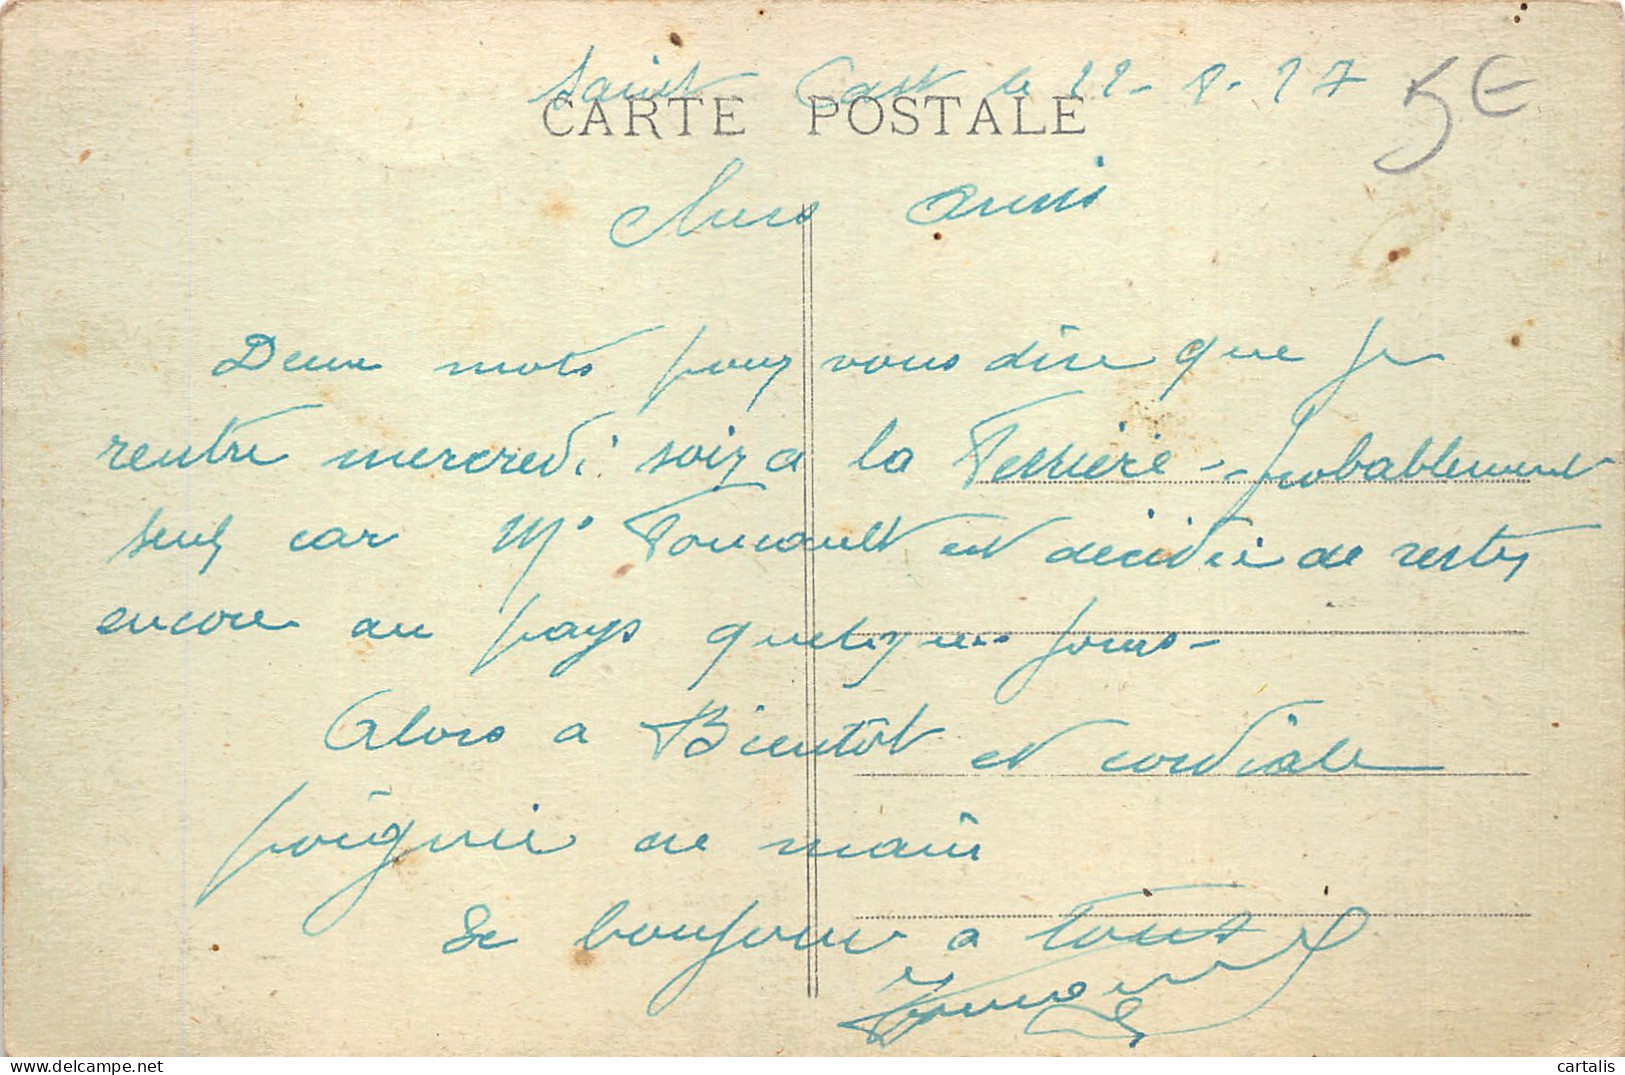 Saint Cast le 22-8-27
5€
CARTE POSTALE
Chers Amis
Deux mots pour vous dire que je
rentre mercredi soir a la Ferrière - probablement
seul car Me Foucault est décidée de rester
encore au pays quelques jours -
Alors a Bientôt et cordiale
poignée de main
Le bonjour a tous
delcampe.net
cartalis